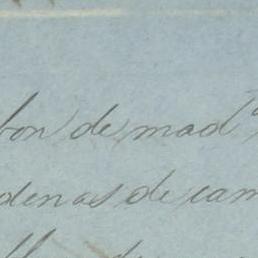 bon de mad.ª
denas de cam